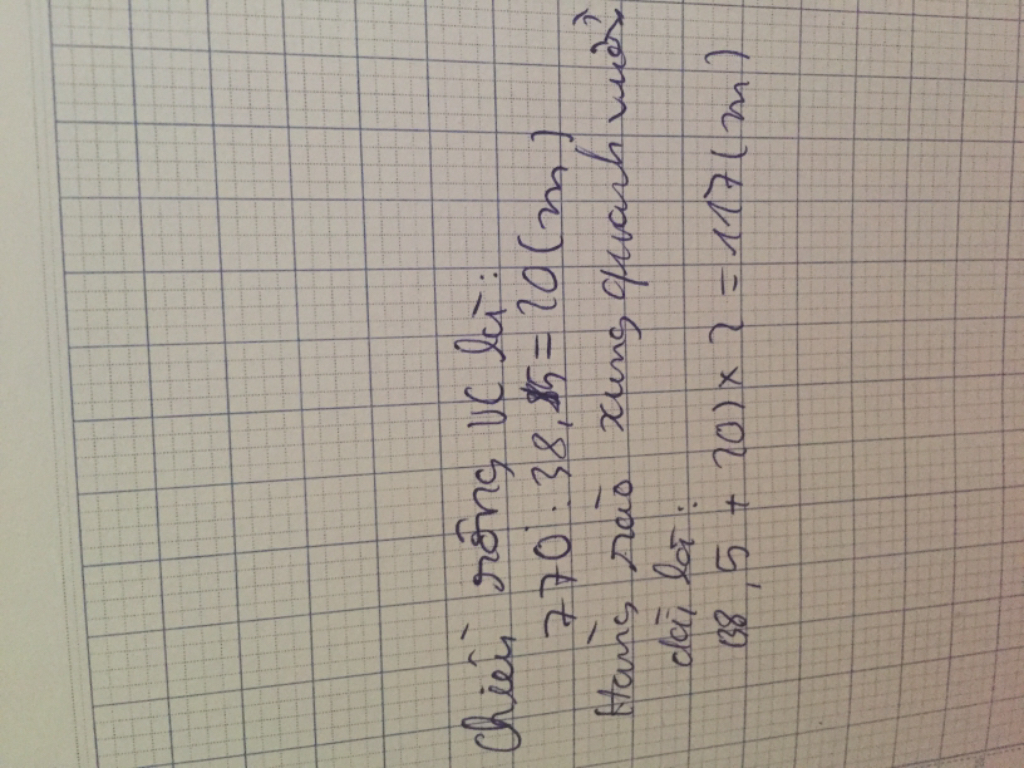 Chiều rộng HC là:
770 : 38,5 = 20 (m)
Hàng rào xung quanh vườn
dài là:
(38,5 + 20) x 2 = 117 (m)